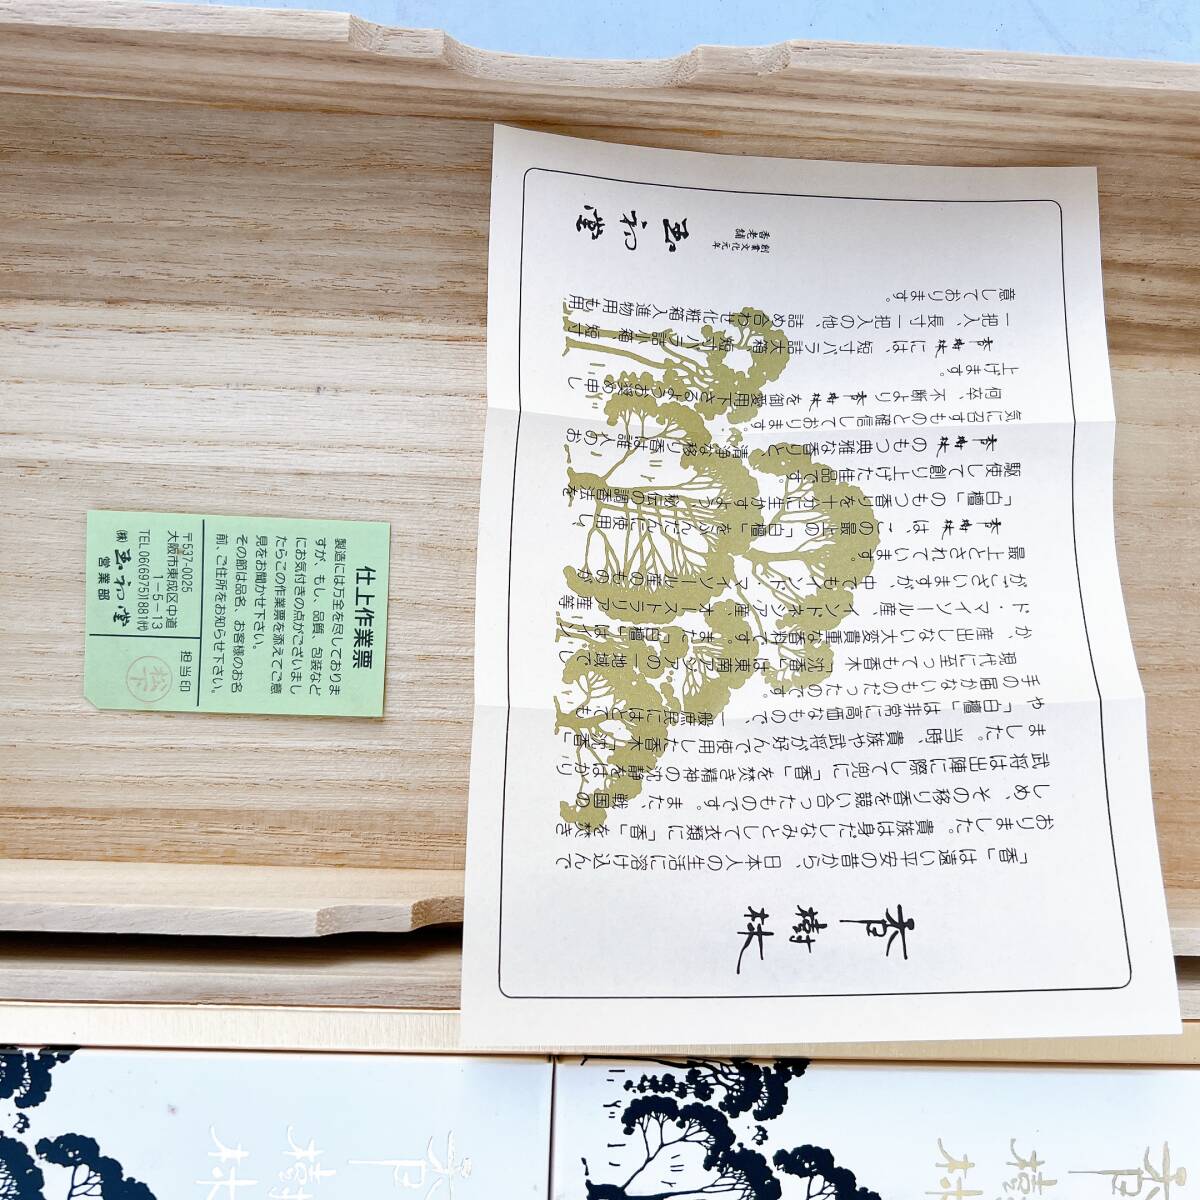 香樹林
「香」は遠い平安の昔から、日本人の生活に溶け込んで
おりました。貴族は身だしなみとして衣類に「香」を焚き
しめ、その移り香を競い合ったものです。また、戦国の
武将は出陣に際して兜に「香」を焚き精神の沈静をはかり
ました。当時、貴族や武将が好んで使用した香木「沈香」
や「白檀」は非常に高価なもので、一般庶民にはとても
手の届かないものだったのです。
現代に至っても香木「沈香」は東南アジアの一地域でし
か、産出しない大変貴重な香料です。また「白檀」はイン
ド・マイソール産、インドネシア産、オーストラリア産等
がございますが、中でもインド・マイソール産のものが
最上とされています。
香樹林は、この最上の「白檀」をふんだんに使用し、
「白檀」のもつ香りを十分に生かすよう、秘伝の調香法を
駆使して創り上げた佳品です。
香樹林のもつ典雅な香りと、清浄な移り香は誰人のお
気に召すものと確信しております。
何卒、不断より香樹林を御愛用下さるようお奨め申し
上げます。
香樹林には、短寸バラ詰大箱、短寸バラ詰小箱、短寸
一把入、長寸一把入の他、詰め合わせ化粧箱入進物用も用
意しております。
創業文化元年
香老舗
玉初堂
仕上作業票
製造には万全を尽しておりま
すが、もし、品質、包装など
にお気付きの点がございまし
たらこの作業票を添えてご意
見をお聞かせ下さい。
その節は品名、お客様のお名
前、ご住所をお知らせ下さい。
〒537-0025
大阪市東成区中道
1-5-13
TEL.06(6975)1881㈹
㈱玉初堂
営業部
担当印
松下
香樹林
香樹林